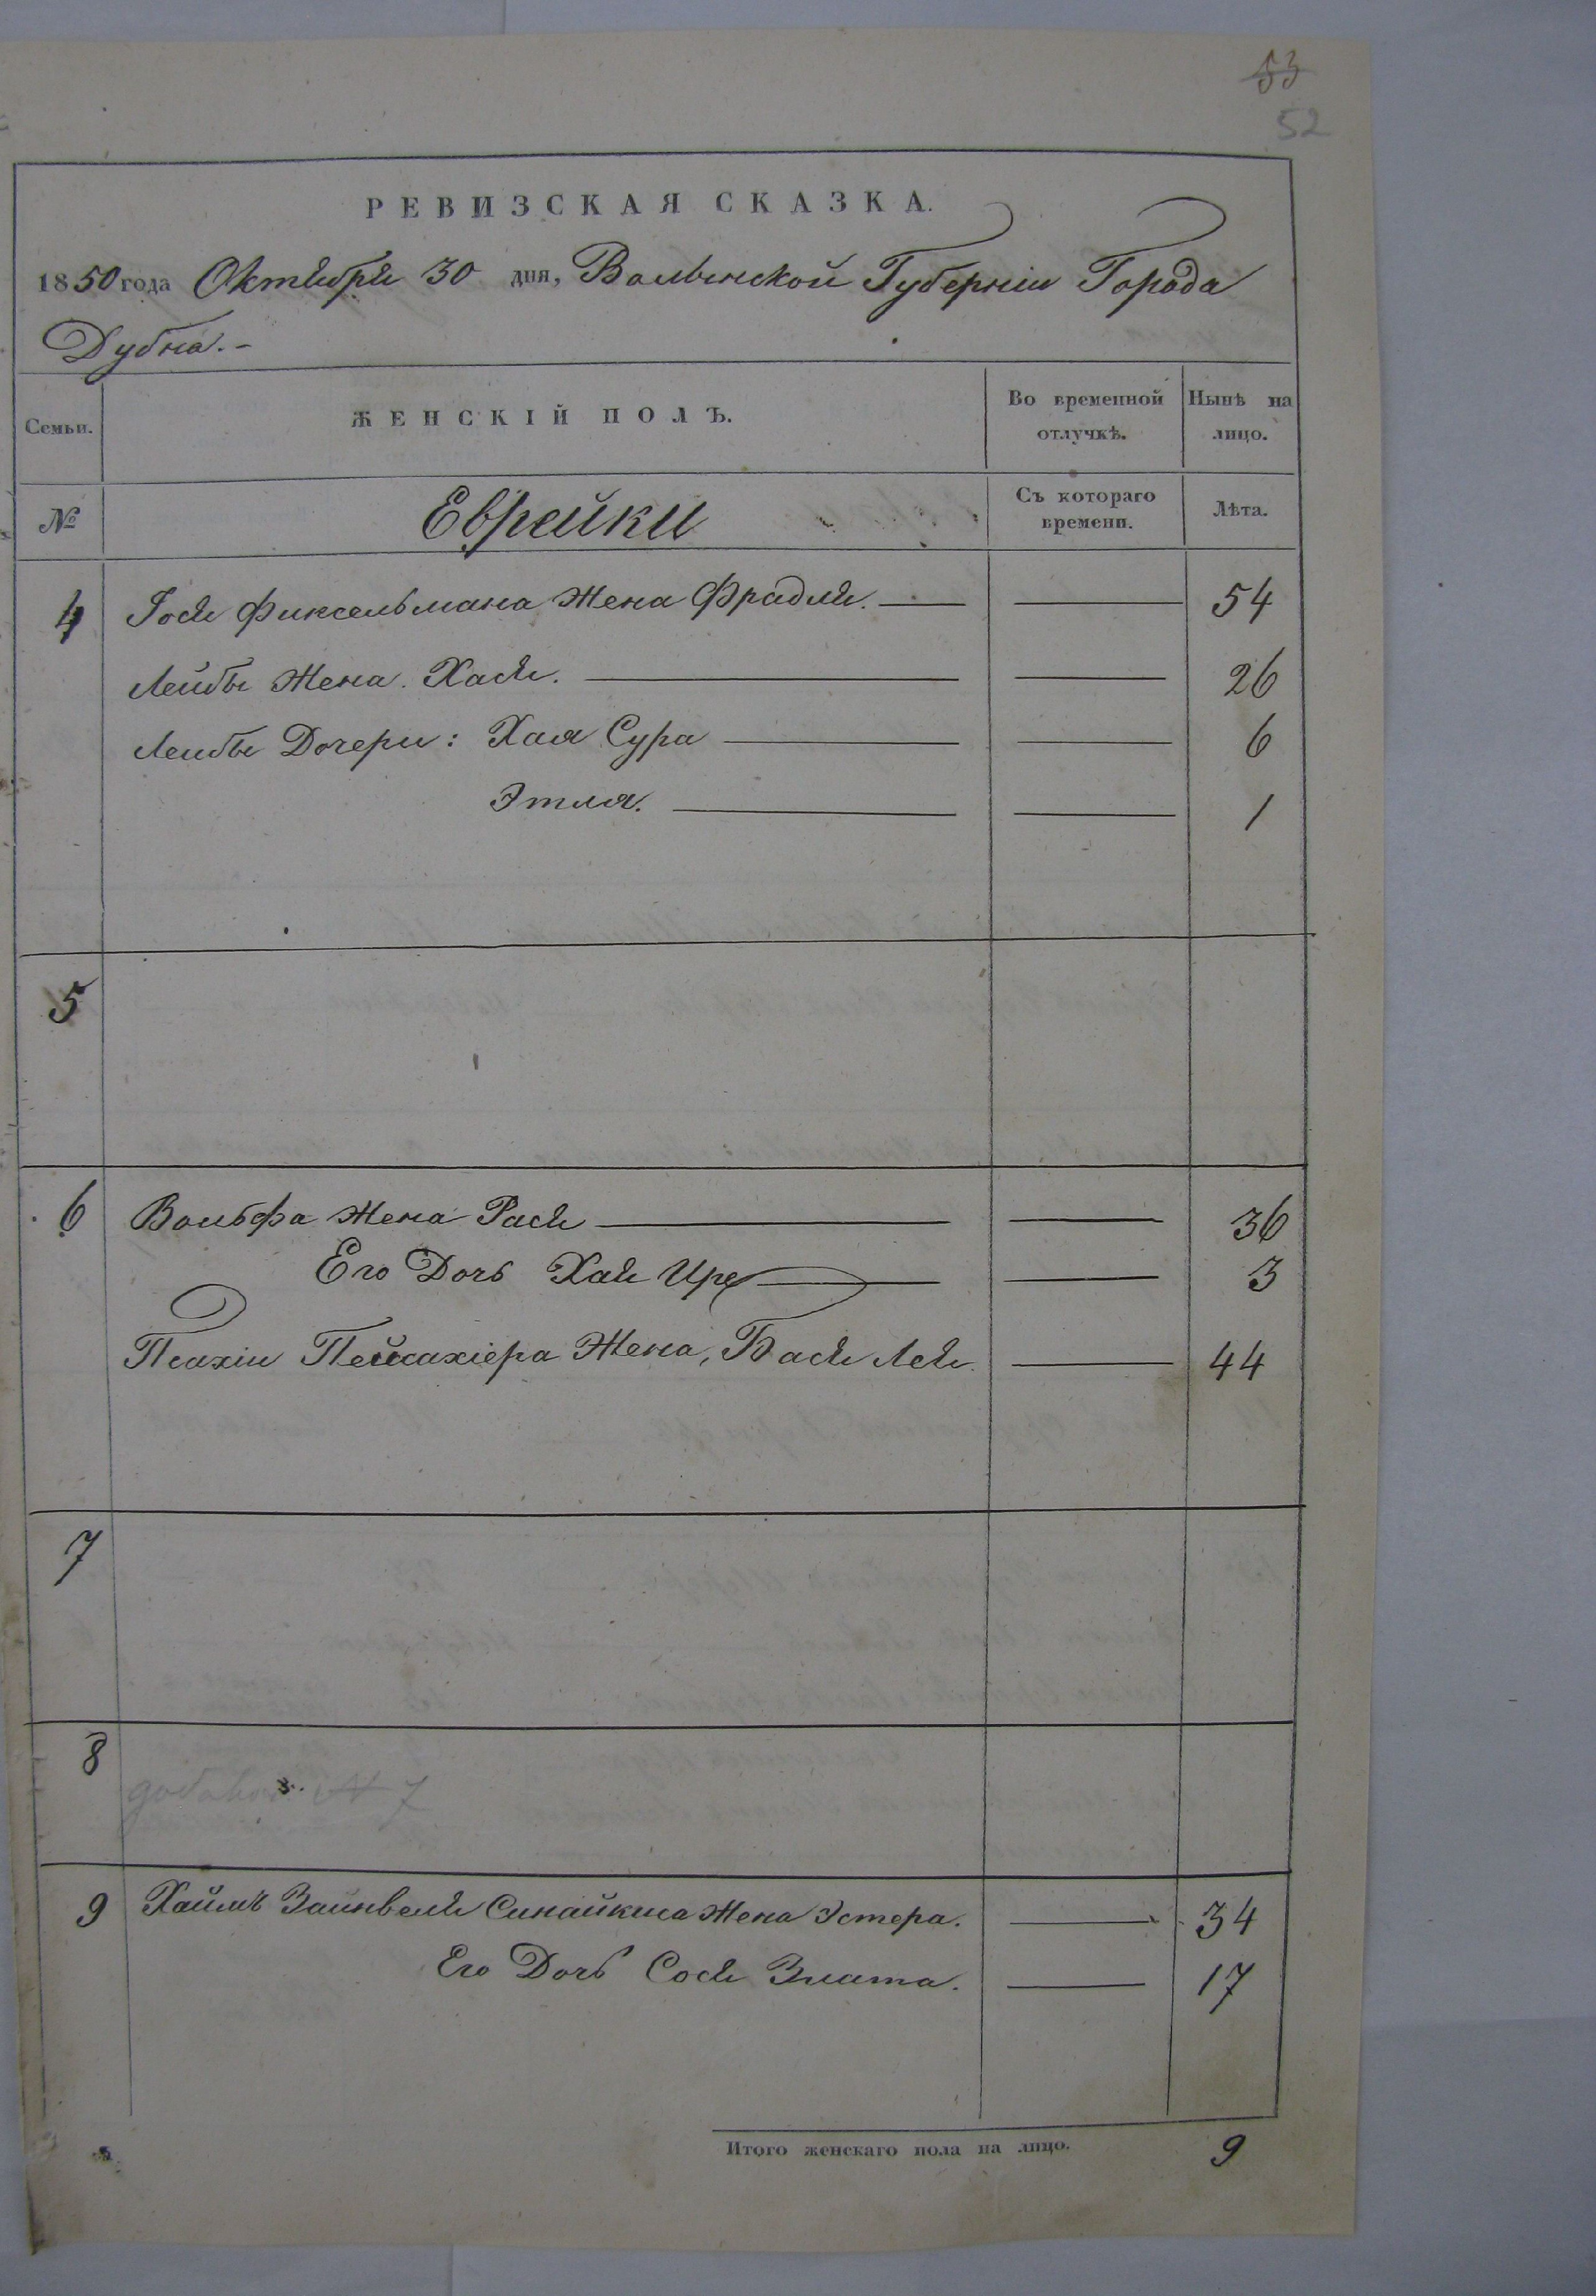 53
52
РЕВИЗСКАЯ СКАЗКА.
1850 года Октября 30 дня, Волынской Губерніи Города
Дубна.-
Семьи.
ЖЕНСКІЙ ПОЛЪ.
Во временной отлучкѣ.
Нынѣ на лицо.
№
Еврейки
Съ котораго времени.
Лѣта.
4 Іося Фиксельмана Жена Фрадля. — — 54
Лейбы Жена. Хася. — — 26
Лейбы Дочери: Хая Сура — — 6
Этля. — — 1
5
6 Вольфа Жена Рася — — 36
Его Дочь Хая — — 3
Псахіи Пейсахіера Жена, Бася Лея — 44
7
8
№ 7
9 Хаимъ Заинвеля Синайкиса Жена Эстера. — 34
Его Дочь Сося Злата. — 17
Итого женскаго пола на лицо. 9